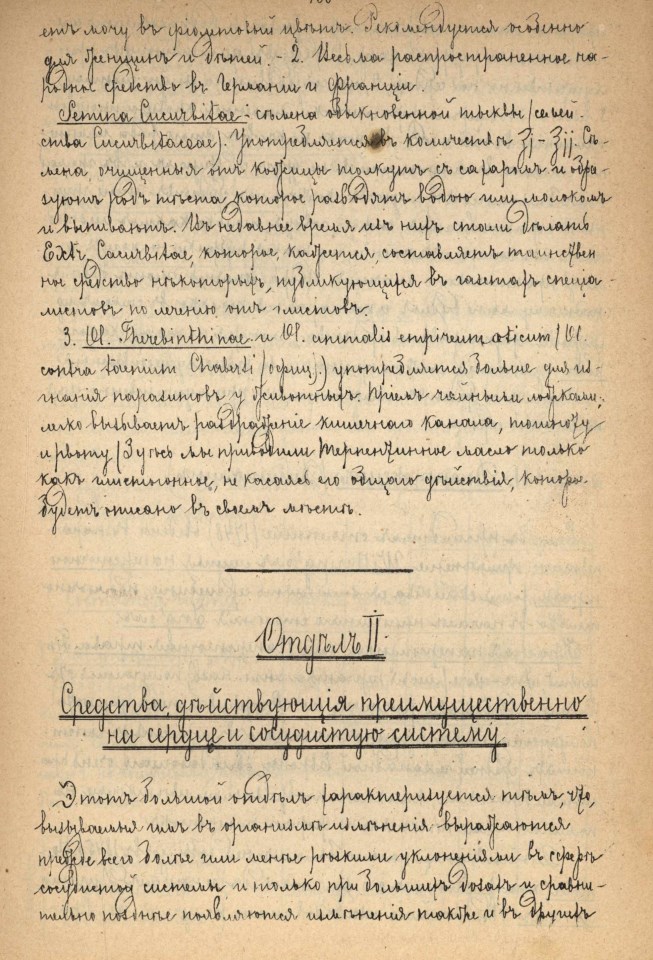 етъ мочу въ фіолетовый цвѣтъ. Рекомендуется особенно
для женщинъ и дѣтей. – 2. Весьма распространенное на-
родное средство въ Германіи и Франціи.
Semina Cucurbitae – сѣмена обыкновенной тыквы (семей
ства Cucurbitaceae). Употребляется въ количествѣ ʒj – ʒjj. Сѣ-
мена, очищенныя отъ кожицы толкутъ съ сахаромъ и обра-
зуютъ родъ тѣста, которое разводятъ водою или молокомъ
и выпиваютъ. Въ недавнее время изъ нихъ стали дѣлать
Extr. Cucurbitae, которое, кажется, составляетъ таинствен
ное средство нѣкоторыхъ, публикующихся въ газетахъ спеціа-
листовъ по леченію отъ глистовъ.
3. Ol. Therebinthinae и Ol. animalis empireumaticum (Ol.
contra taenium Chaberti (офиц.)) употребляется больше для из-
гнанія паразитовъ у животныхъ. Пріемъ чайными ложками;
легко вызываетъ раздраженіе кишечнаго канала, тошноту
и рвоту (Здѣсь мы приводили Терпентинное масло только
какъ глистогонное, не касаясь его общаго дѣйствія, которы
будетъ описано въ своемъ мѣстѣ.
Отдѣлъ II.
Средства, дѣйствующія преимущественно
на сердце и сосудистую систему.
Этотъ большой отдѣлъ характеризуется тѣмъ, что,
вызываемыя имъ въ организмѣ измѣненія выражаются
прежде всего болѣе или менѣе рѣзкими уклоненіями въ сферѣ
сосудистой системы и только при большихъ дозахъ и сравни-
тельно позднѣе появляются измѣненія также и въ другихъ